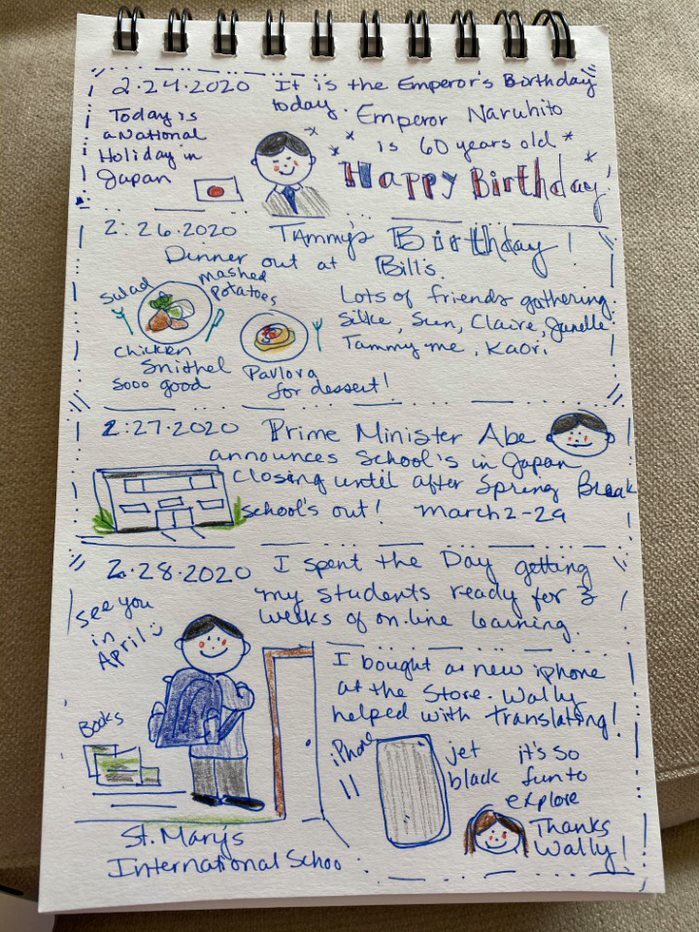 2.24.2020 It is the Emperor's Birthday
today. Emperor Naruhito
is 60 years old
Today is
a National
Holiday in
Japan
Happy Birthday!
2.26.2020 TAmmy's Birthday!
Dinner out at Bill's.
Salad
mashed
potatoes
Chicken
Snithel
Sooo good
Pavlova
for dessert!
Lots of friends gathering.
Silke, Sun, Claire, Janelle
Tammy me, Kaori
2.27.2020 Prime Minister Abe
announces School's in Japan
closing until after Spring Break
School's out! March 2-29
2.28.2020 I spent the Day getting
my students ready for 3
weeks of on-line learning.
See you
in
April
Books
St. Mary's
International Schoo
I bought a new iphone
at the Store. Wally
helped with translating!
iPhone
11
jet
black
it's so
fun to
explore
Thanks
Wally!